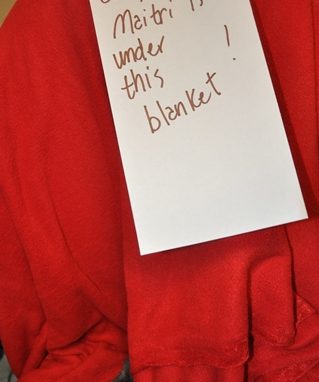 Maitri is
under
this !
blanket